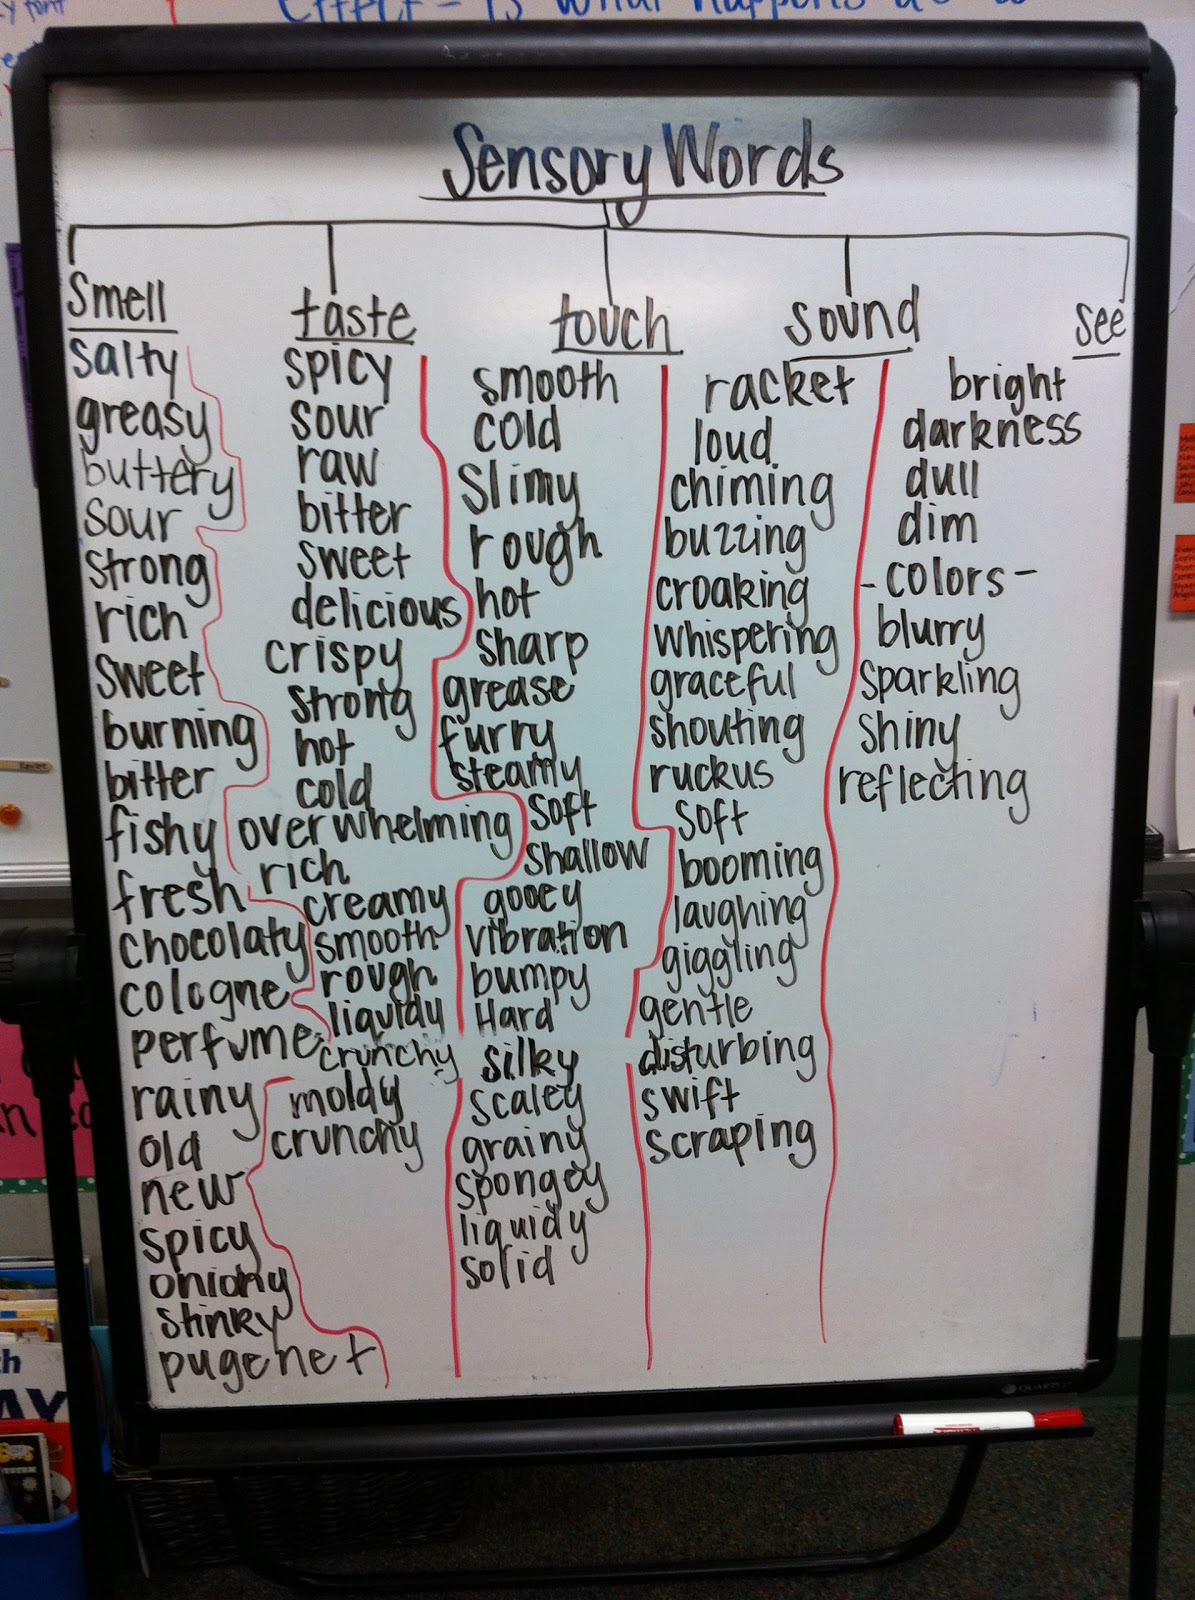 Effect - is what happens
Sensory Words
smell
salty
greasy
buttery
sour
strong
rich
sweet
burning
bitter
fishy
fresh
chocolaty
cologne
perfume
rainy
old
new
spicy
oniony
stinky
pugenet
taste
spicy
sour
raw
bitter
sweet
delicious
crispy
strong
hot
cold
overwhelming
rich
creamy
smooth
rough
liquidy
crunchy
moldy
crunchy
touch
smooth
cold
slimy
rough
hot
sharp
grease
furry
steamy
soft
shallow
gooey
vibration
bumpy
Hard
silky
scaley
grainy
spongey
liquidy
solid
sound
racket
loud
chiming
buzzing
croaking
whispering
graceful
shouting
ruckus
soft
booming
laughing
giggling
gentle
disturbing
swift
scraping
see
bright
darkness
dull
dim
-colors-
blurry
sparkling
shiny
reflecting
QUARTET